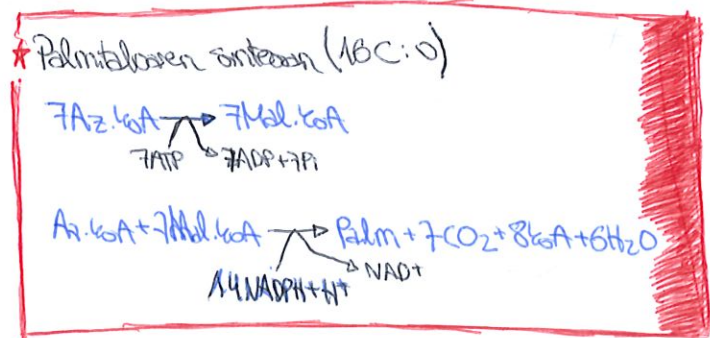 * Palmitatoaren sintesian (16C:0)
7Az.KoA → 7Mal.KoA
7ATP 7ADP+7Pi
Az.KoA+7Mal.KoA → Palm+7CO₂+8KoA+6H₂O
14NADPH+H⁺ NAD⁺